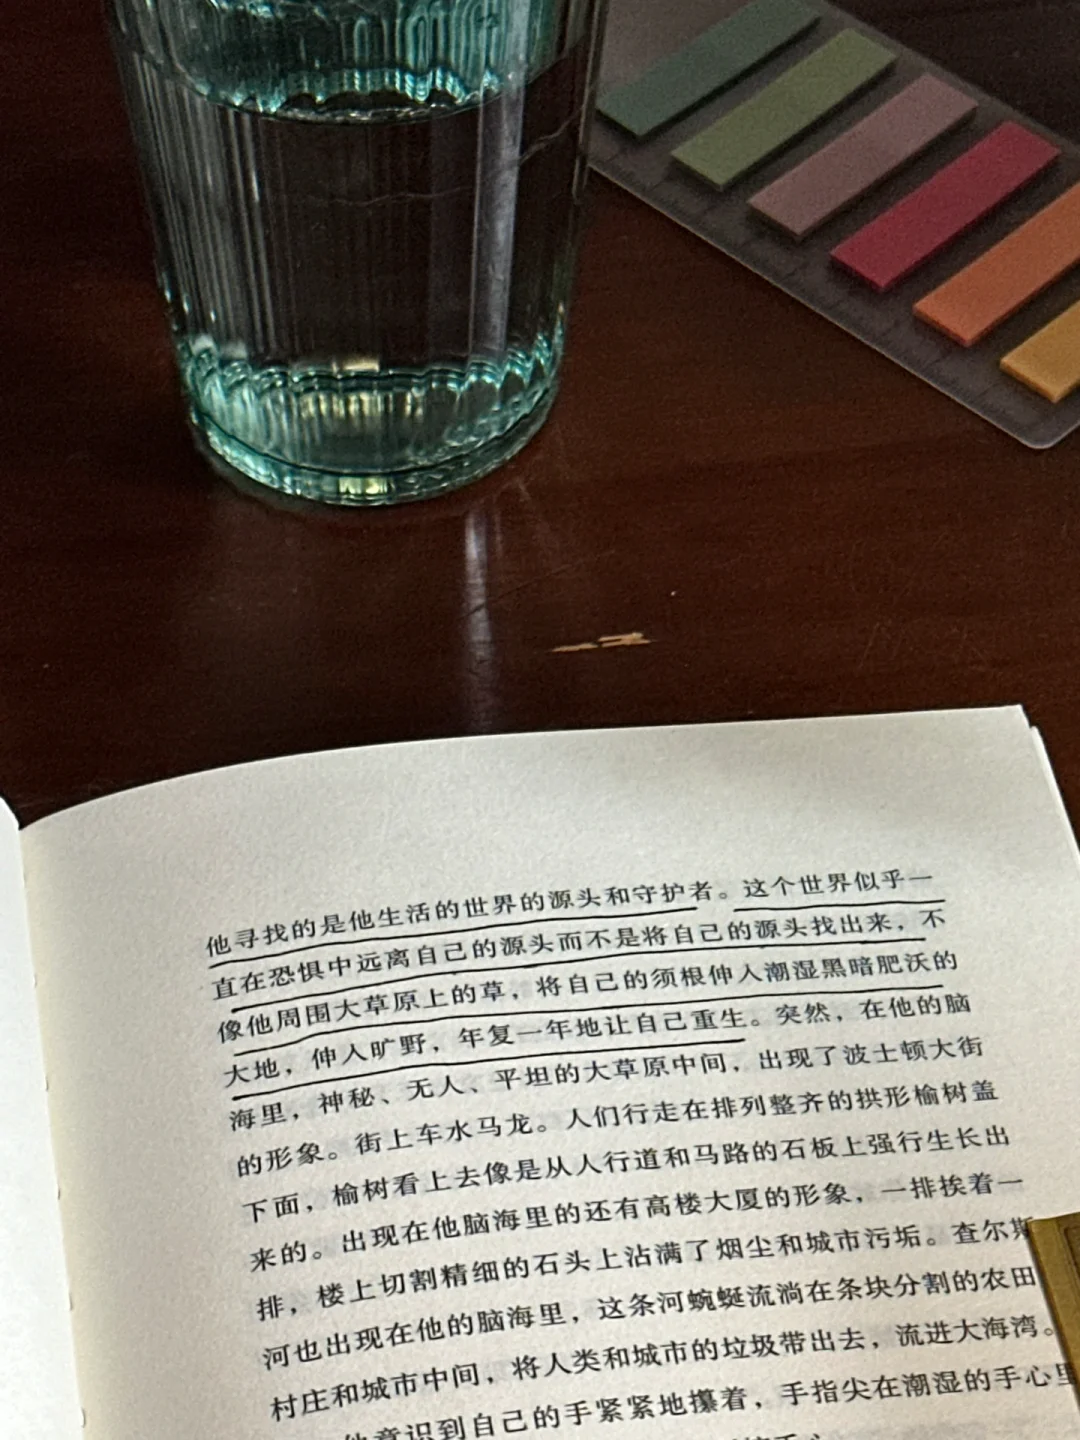 他寻找的是他生活的世界的源头和守护者。这个世界似乎一
直在恐惧中远离自己的源头而不是将自己的源头找出来，不
像他周围大草原上的草，将自己的须根伸入潮湿黑暗肥沃的
大地，伸入旷野，年复一年地让自己重生。突然，在他的脑
海里，神秘、无人、平坦的大草原中间，出现了波士顿大街
的形象。街上车水马龙。人们行走在排列整齐的拱形榆树盖
下面，榆树看上去像是从人行道和马路的石板上强行生长出
来的。出现在他脑海里的还有高楼大厦的形象，一排挨着一
排，楼上切割精细的石头上沾满了烟尘和城市污垢。查尔斯
河也出现在他的脑海里，这条河蜿蜒流淌在条块分割的农田
村庄和城市中间，将人类和城市的垃圾带出去，流进大海湾。
他意识到自己的手紧紧地攥着，手指尖在潮湿的手心里